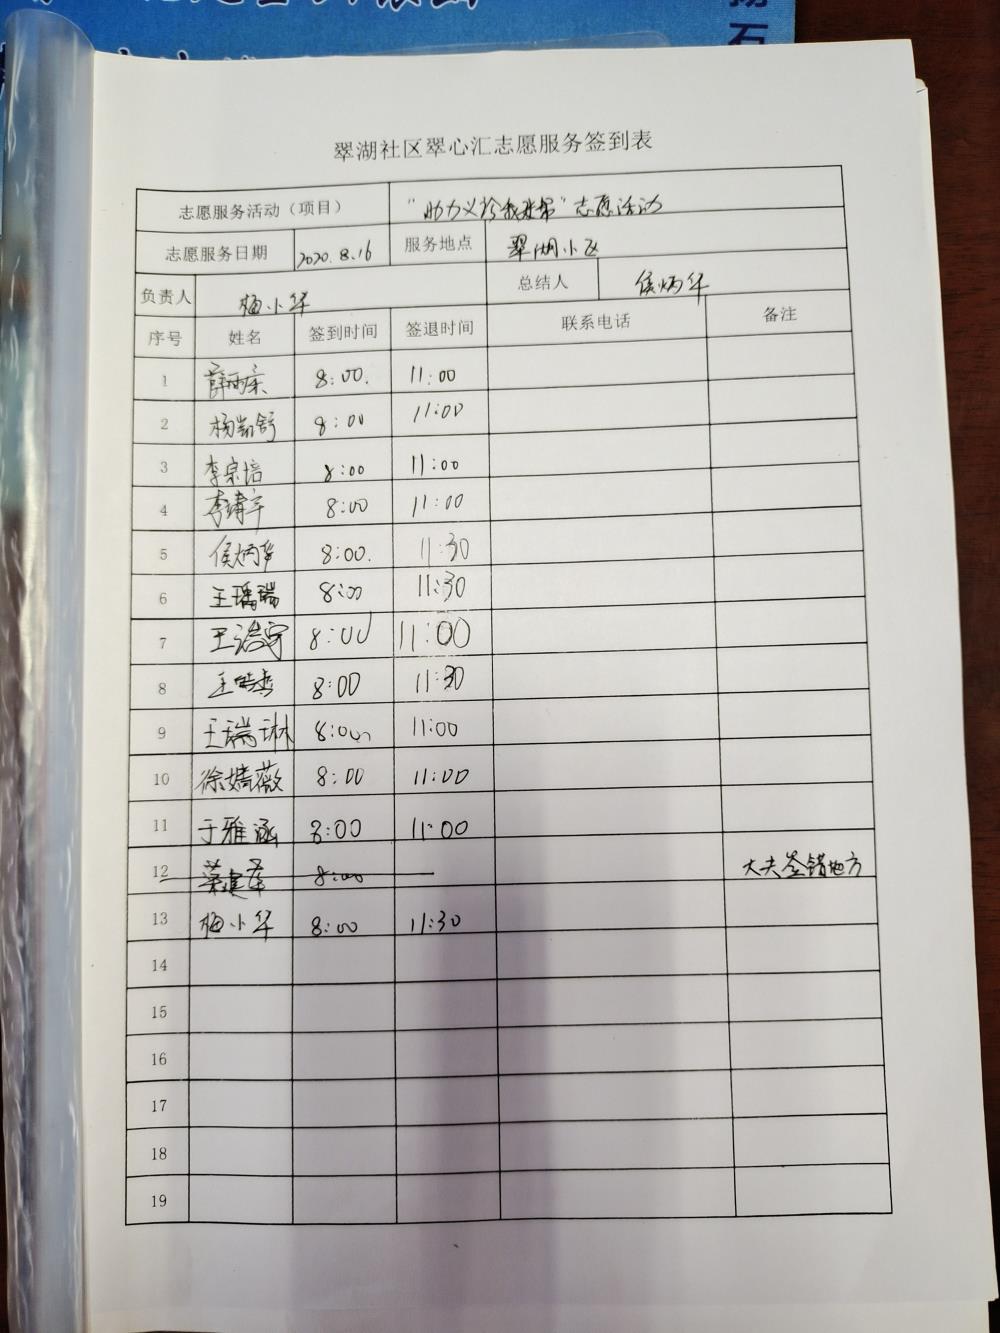 翠湖社区翠心汇志愿服务签到表
志愿服务活动（项目） “助力义诊我来帮”志愿活动
志愿服务日期 2020.8.16 服务地点 翠湖小区
负责人 梅小华 总结人 侯炳华
序号 姓名 签到时间 签退时间 联系电话 备注
1 薛雨 8:00. 11:00
2 杨凯舒 8:00 11:00
3 李宗培 8:00 11:00
4 李靖宇 8:00 11:00
5 侯炳华 8:00. 11:30
6 王瑞 8:00 11:30
7 王浩宇 8:00 11:00
8 王 8:00 11:30
9 王瑞琳 8:00 11:00
10 徐嫣薇 8:00 11:00
11 于雅涵 8:00 11:00
12 8:00 大夫签错地方
13 梅小华 8:00 11:30
14
15
16
17
18
19
石